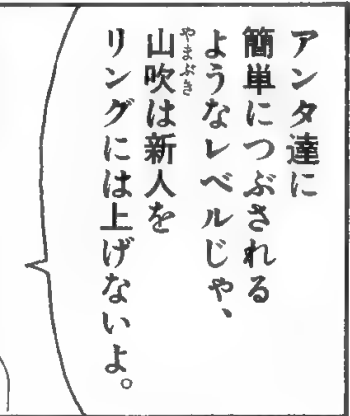 アンタ達に
簡単につぶされる
ようなレベルじゃ、
山吹は新人を
リングには上げないよ。
やまぶき